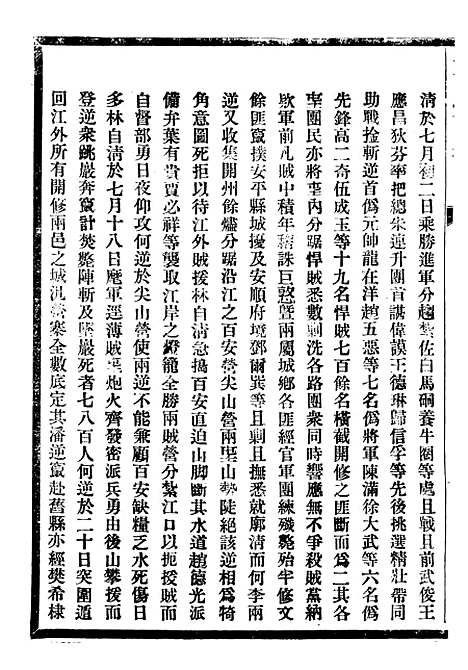 清於七月初二日乘勝進軍分趨紮佐白馬硐養牛圈等處且戰且前武俊王
應昌狄芬率把總朱連升團首諶偉謨王德琳歸信孚等先後挑選精壯帶同
助戰撿斬逆首爲元帥龍在洋趙五惡等七名爲將軍陳滿徐大武等六名爲
先鋒高二奇伍成玉等十九名悍賊七百餘名橫截開修之匪斷而爲二其各
團民亦將屯內分踞悍賊悉數剿洗各路團衆同時響應無不爭殺賊黨納
欵軍前凡賊中積年稽誅巨憝曁兩屬城鄉各匪經官軍團練殲斃殆半修文
餘匪竄撲安平縣城擾及安順府境鄧爾巽等且剿且撫悉就廓清而何李兩
逆又收集開州餘燼分踞沿江之百安營尖山營兩山勢陡絕該逆相爲犄
角意圖死拒以待江外賊援林自清急搗百安直迫山脚斷其水道趙德光派
備弁葉有貴賈必祥等襲取江岸之燈籠全勝兩賊營分紮江口以扼援賊而
自督部勇日夜仰攻何逆於尖山營使兩逆不能兼顧百安缺糧乏水死傷日
多林自清於七月十八日麾軍逕薄賊屯炮火齊發密派兵勇由後山攀援而
登逆衆跳巖奔竄計焚斃陣斬及墜巖死者七八百人何逆於二十日突圍遁
回江外所有開修兩邑之城汛營寨全數底定其潘逆竄赴舊縣亦經樊希棣